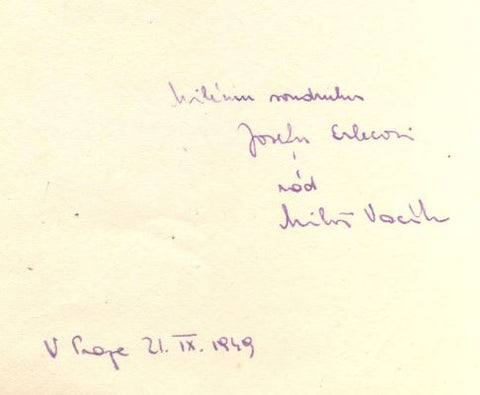 Milému soudruhu
Josefu Erlecovi
rád
Miloš Vacík
V Praze 21. IX. 1949